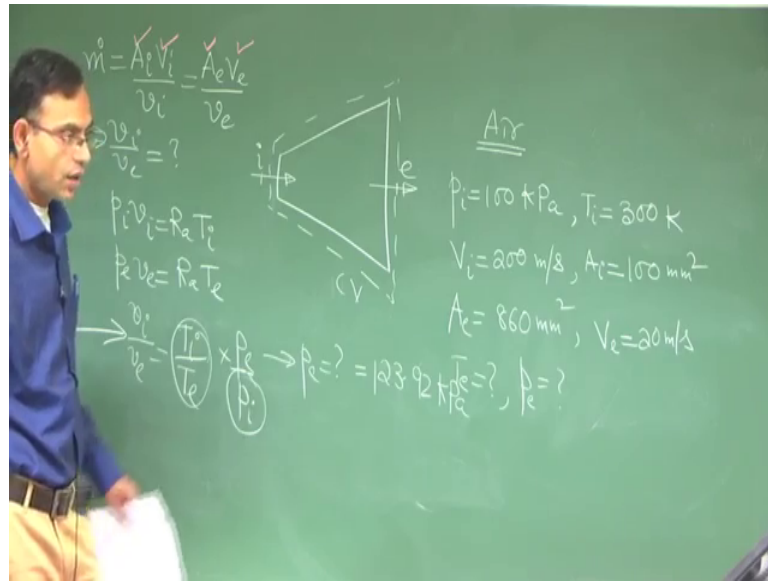 ṁ = AᵢVᵢ/vᵢ = AₑVₑ/vₑ
⇒ vᵢ/vₑ = ?
pᵢvᵢ = RₐTᵢ
pₑvₑ = RₐTₑ
→ vᵢ/vₑ = Tᵢ/Tₑ × pₑ/pᵢ → pₑ = ? = 123.92 kPa
i
e
CV
Air
pᵢ = 100 kPa, Tᵢ = 300 K
Vᵢ = 200 m/s, Aᵢ = 100 mm²
Aₑ = 860 mm², Vₑ = 20 m/s
Tₑ = ?, pₑ = ?